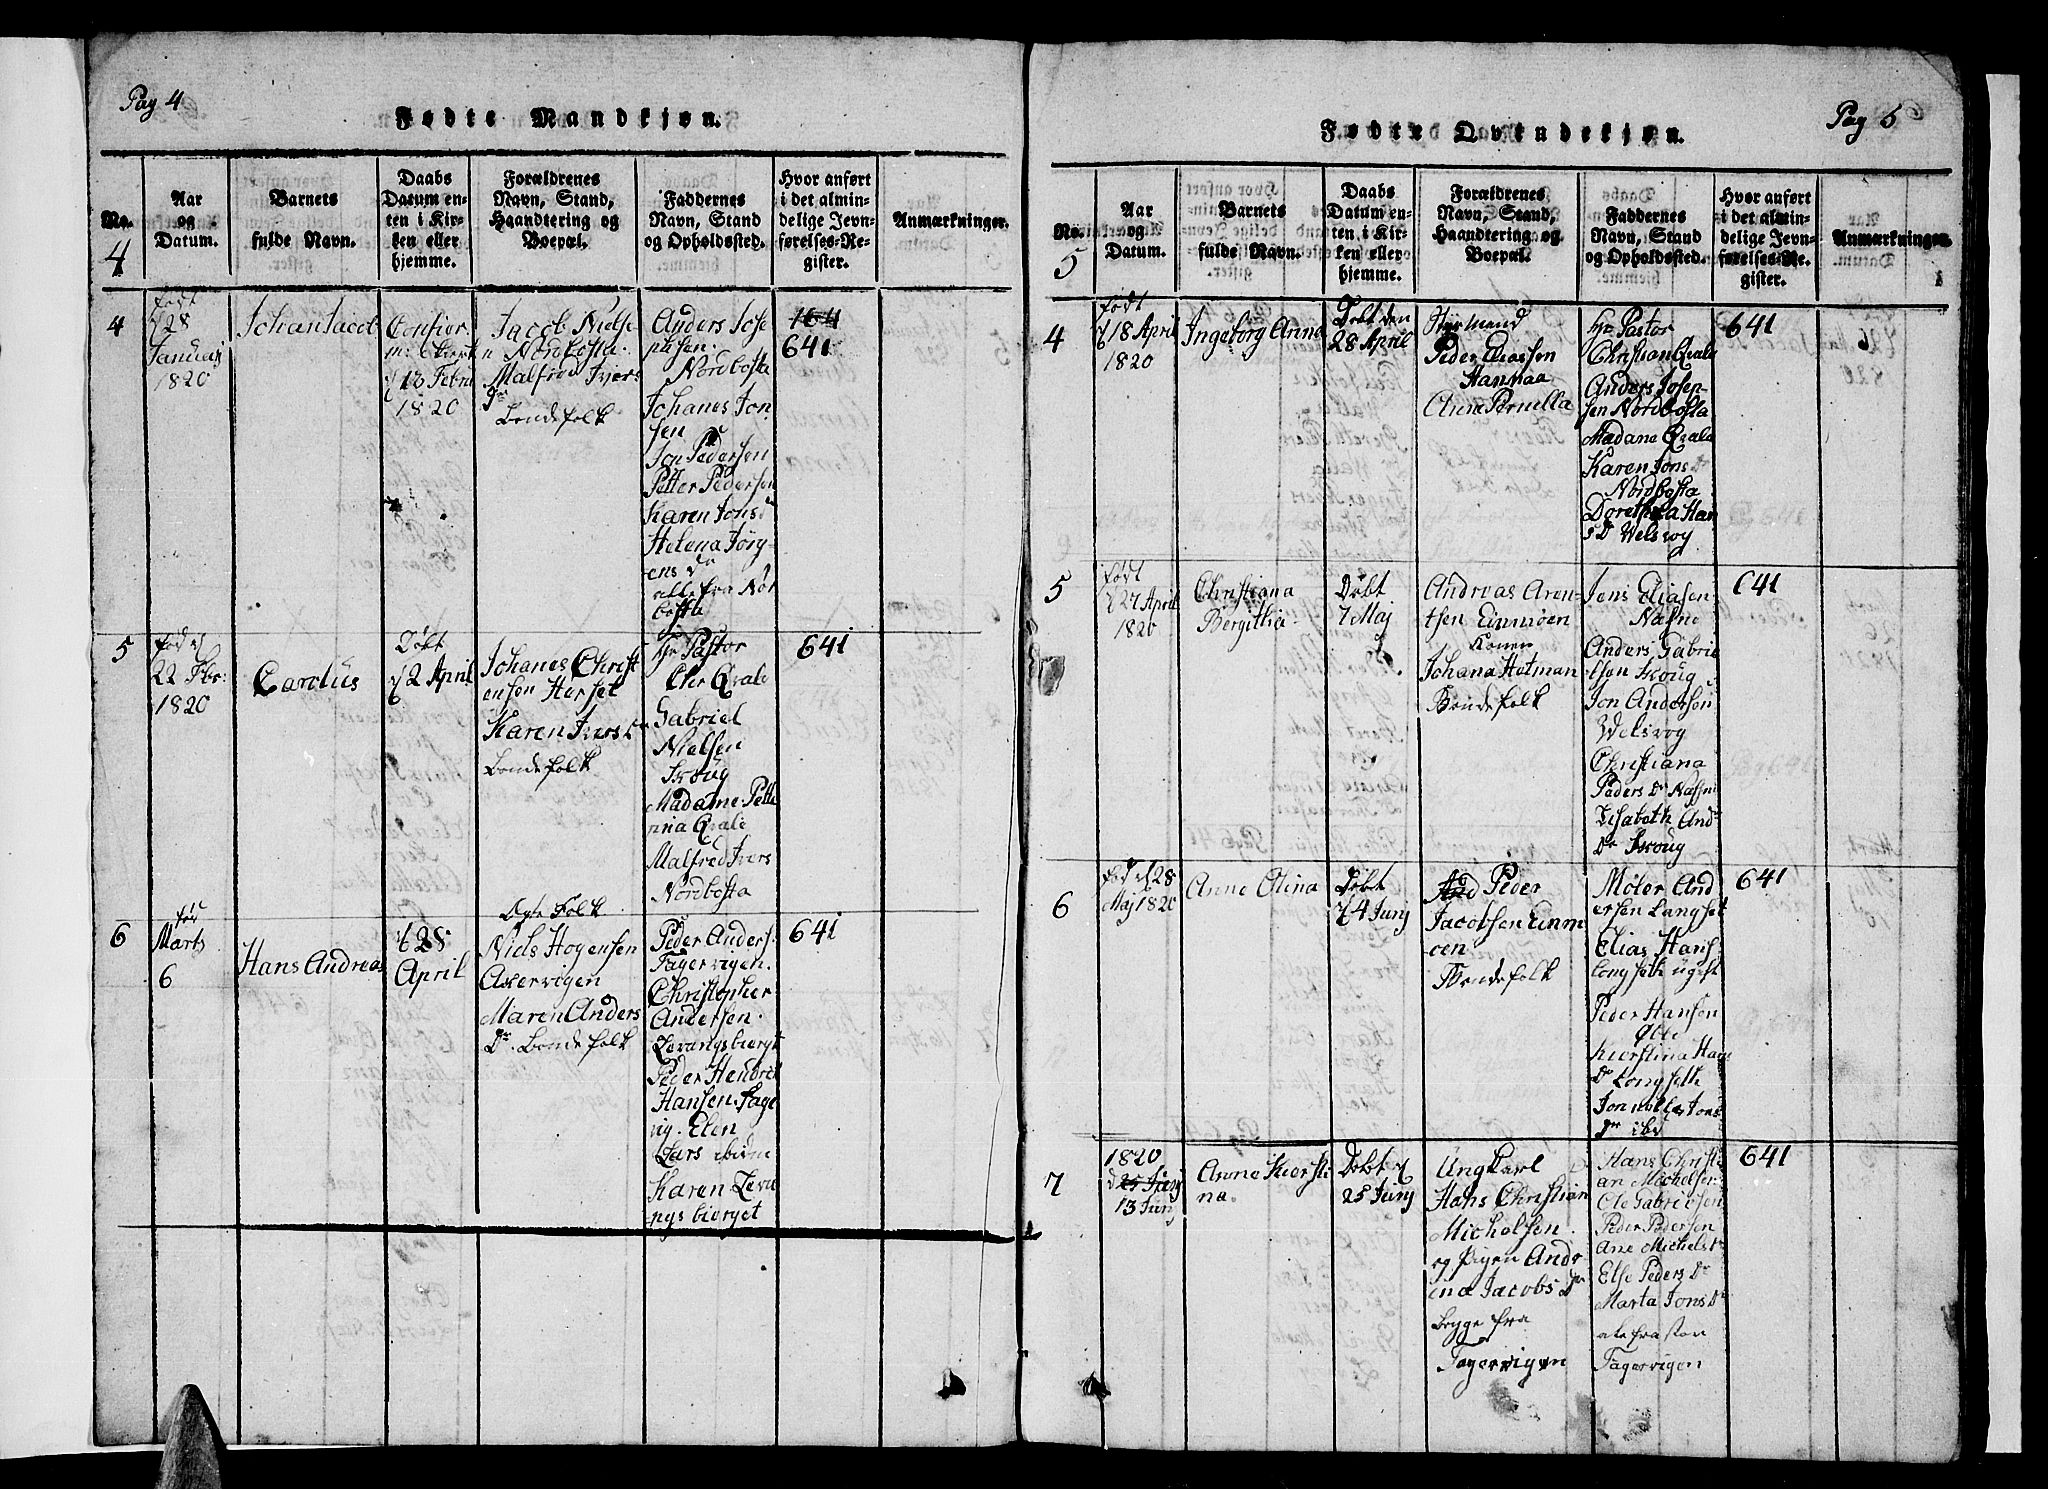 Pag 4
Fødte Mandkjøn.
No.
4
Aar
og
Datum.
Barnets
fulde Navn.
Daabs
Datum en-
ten i Kir-
ken eller
hjemme.
Forældrenes
Navn, Stand,
Haandtering og
Boepæl.
Faddernes
Navn, Stand
og Opholdssted.
Hvor anført
i det almin-
delige Jevn-
førelses-Re-
gister.
Anmærkninger.
4
født
28
Januarj
1820
Johan Jacob
Confir
1820
Jacob Niels
Nordbosta.
Malfrid Ivers
Dr
Bondefolk
Anders Jose
phsen.
Nordbosta
Johanes Jon
sen
Jon Pedersen
Petter Pedersen
Karen Jons
Helena Jörg
ens Dr
alle fra Nor
bosta
164
641
5
22 Fbr:
1820
Carolus
Døbt
2 April
Johanes Christ
ensen Herset
Karen Ivers
Bondefolk
Hr Pastor
Chr Qvale
Gabriel
Nielsen
Skoug
Madame Pette
rina Qvale
Malfred Ivers
Nordbosta
641
6
Marts
6
Hans Andreas
28
April
Ægte Folk
Niels Hogensen
Axervigen
Maren Anders
Dr. Bondefolk
Peder Anders:
Fagervigen.
Christopher
Andersen.
Levangsbierget
Peder Hendrik
Hansen. Fage
vig. Elen
Lars ibidem
Karen Leva
ngsbierget
641
Pag 5
Fødte Qvindekjøn.
No.
5
Aar
og
Datum.
Barnets
fulde Navn.
Daabs
Datum en-
ten i Kir-
ken eller
hjemme.
Forældrenes
Navn, Stand,
Haandtering og
Boepæl.
Faddernes
Navn, Stand
og Opholdssted.
Hvor anført
i det almin-
delige Jevn-
førelses-Re-
gister.
Anmærkninger.
4
født
18 April
1820
Ingeborg Anna
Døbt den
28 April
Styrmand
Peder Eliassen
Hannaa
Ane Pernella
Hr Pastor
Christian Qvale
Anders Josen-
sen Nordbosta
Madame Qvale
Karen Jons Dr
Nordbosta
Dorethea Han
s Dr Welsvog
641
5
født
27 April
1820
Christiana
Bergithe
Døbt
7 Maj
Andreas Aren-
tsen Einmoen
Konen
Johana Hetman
Bondefolk
Jens Eliasen
Nasne
Anders Gabrie
lsen Skoug
Jon Andersen
Welsvog
Christiana
Peders Dr Nasne
Lisabeth And
Dr Skoug
641
6
28
Maj 1820
Anne Olina
Døbt
4 Junj
Peder
Jacobsen Einm
oen
Bondefolk
Møler And
ersen Langset
Elias Hans
Peder Hansen
Kierstina Han
Dr Longseth
Dr ibd
641
7
1820
25 Junj
13 Junj
Anna Kiersti
na.
Døbt
25 Junj
Ungkarl
Hans Christian
Michelsen.
og Pigen Andr
ina Jacobs Dr
begge fra
Fagervigen
Hans Christi
an Michelsen
Ole Gabrielsen
Peder Pedersen
Ane Michels Dr
Else Peders Dr
Marta Jons Dr
Fagervigen
641